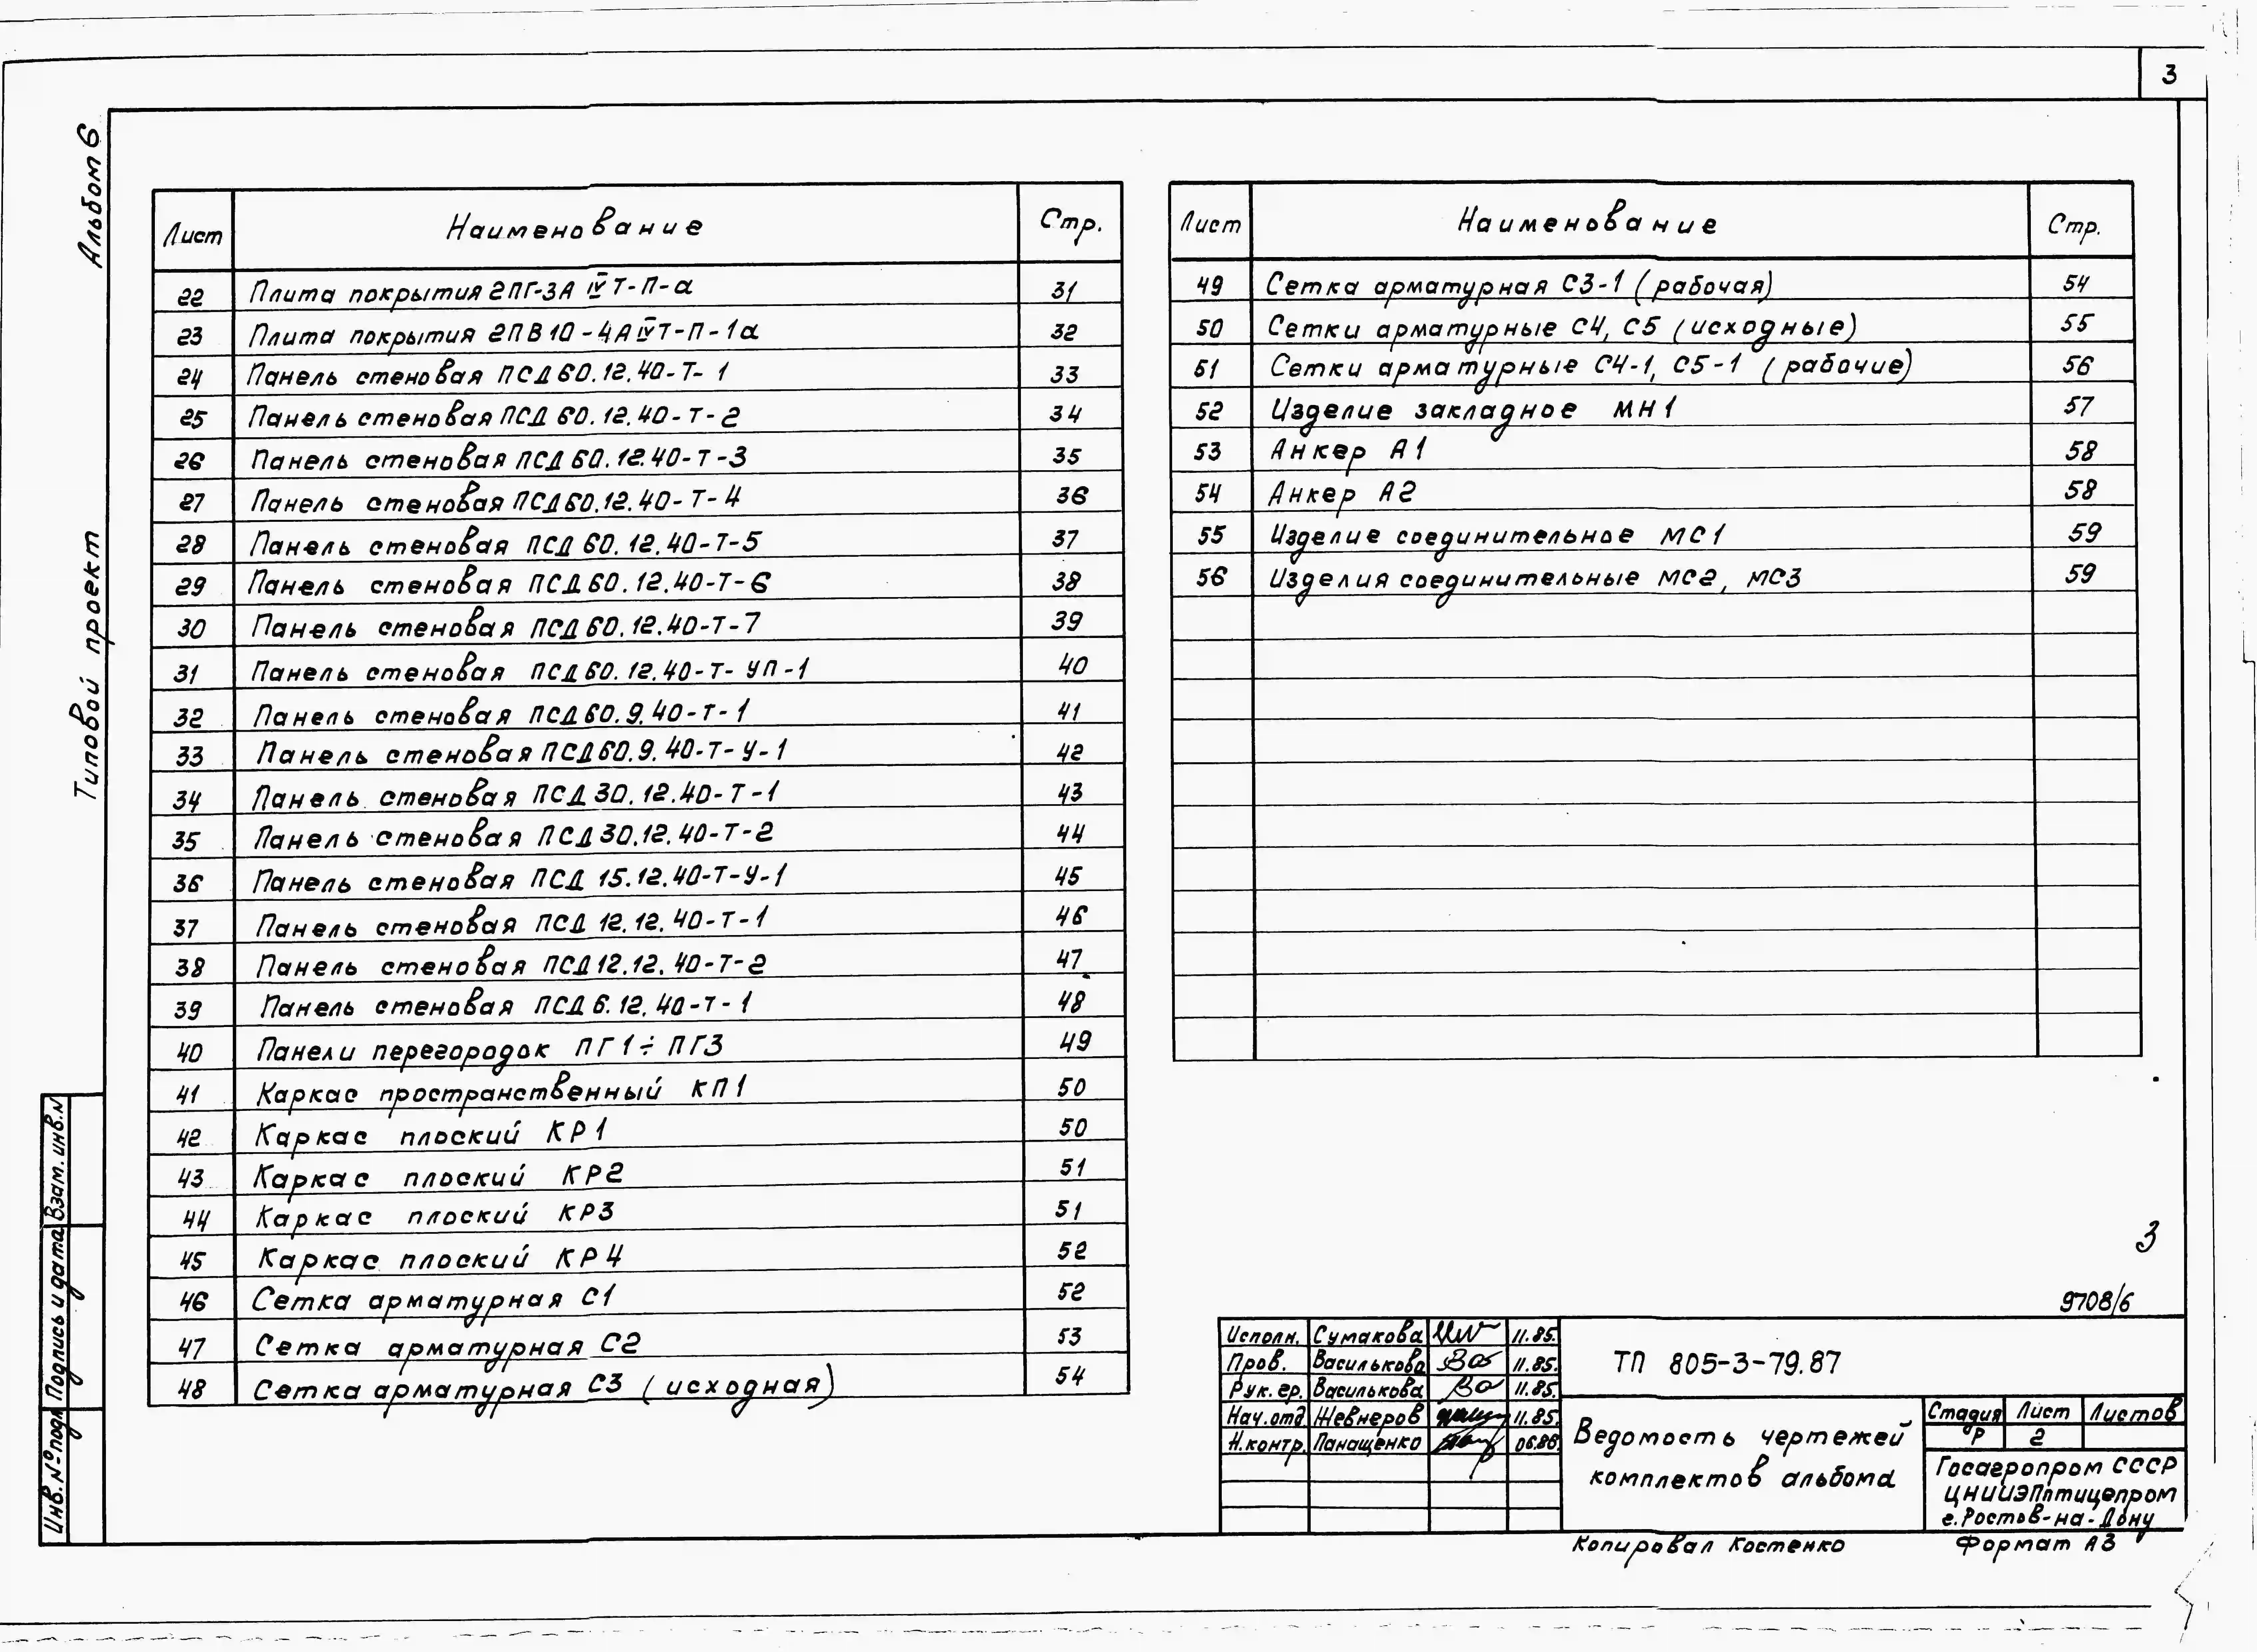 3
Альбом 6
Типовой проект
Лист Наименование Стр.
22 Плита покрытия 2ПГ-3А IVТ-П-а 31
23 Плита покрытия 2ПВ10-4АIVТ-П-1а 32
24 Панель стеновая ПСД60.12.40-Т-1 33
25 Панель стеновая ПСД 60.12.40-Т-2 34
26 Панель стеновая ПСД 60.12.40-Т-3 35
27 Панель стеновая ПСД60.12.40-Т-4 36
28 Панель стеновая ПСД 60.12.40-Т-5 37
29 Панель стеновая ПСД60.12.40-Т-6 38
30 Панель стеновая ПСД 60.12.40-Т-7 39
31 Панель стеновая ПСД60.12.40-Т-УП-1 40
32 Панель стеновая ПСД60.9.40-Т-1 41
33 Панель стеновая ПСД60.9.40-Т-У-1 42
34 Панель стеновая ПСД 30.12.40-Т-1 43
35 Панель стеновая ПСД 30.12.40-Т-2 44
36 Панель стеновая ПСД 15.12.40-Т-У-1 45
37 Панель стеновая ПСД 12.12.40-Т-1 46
38 Панель стеновая ПСД12.12.40-Т-2 47
39 Панель стеновая ПСД 6.12.40-Т-1 48
40 Панели перегородок ПГ1÷ПГ3 49
41 Каркас пространственный КП1 50
42 Каркас плоский КР1 50
43 Каркас плоский КР2 51
44 Каркас плоский КР3 51
45 Каркас плоский КР4 52
46 Сетка арматурная С1 52
47 Сетка арматурная С2 53
48 Сетка арматурная С3 (исходная) 54
Лист Наименование Стр.
49 Сетка арматурная С3-1 (рабочая) 54
50 Сетки арматурные С4, С5 (исходные) 55
51 Сетки арматурные С4-1, С5-1 (рабочие) 56
52 Изделие закладное МН1 57
53 Анкер А1 58
54 Анкер А2 58
55 Изделие соединительное МС1 59
56 Изделия соединительные МС2, МС3 59
3
9708/6
Исполн. Сумакова 11.85.
Пров. Василькова 11.85.
Рук. гр. Василькова 11.85.
Нач. отд. Шевнеров 11.85.
Н.контр. Панащенко 06.86.
ТП 805-3-79.87
Ведомость чертежей
комплектов альбома
Стадия Лист Листов
Р 2
Госагропром СССР
ЦНИИЭПптицепром
г. Ростов-на-Дону
Копировал Костенко Формат А3
Инв. № подл Подпись и дата Взам. инв. №